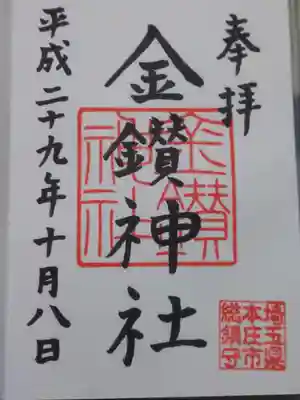 奉拝
金鑚神社
平成二十九年十月八日
金鑚神社
埼玉県
本庄市
総鎮守